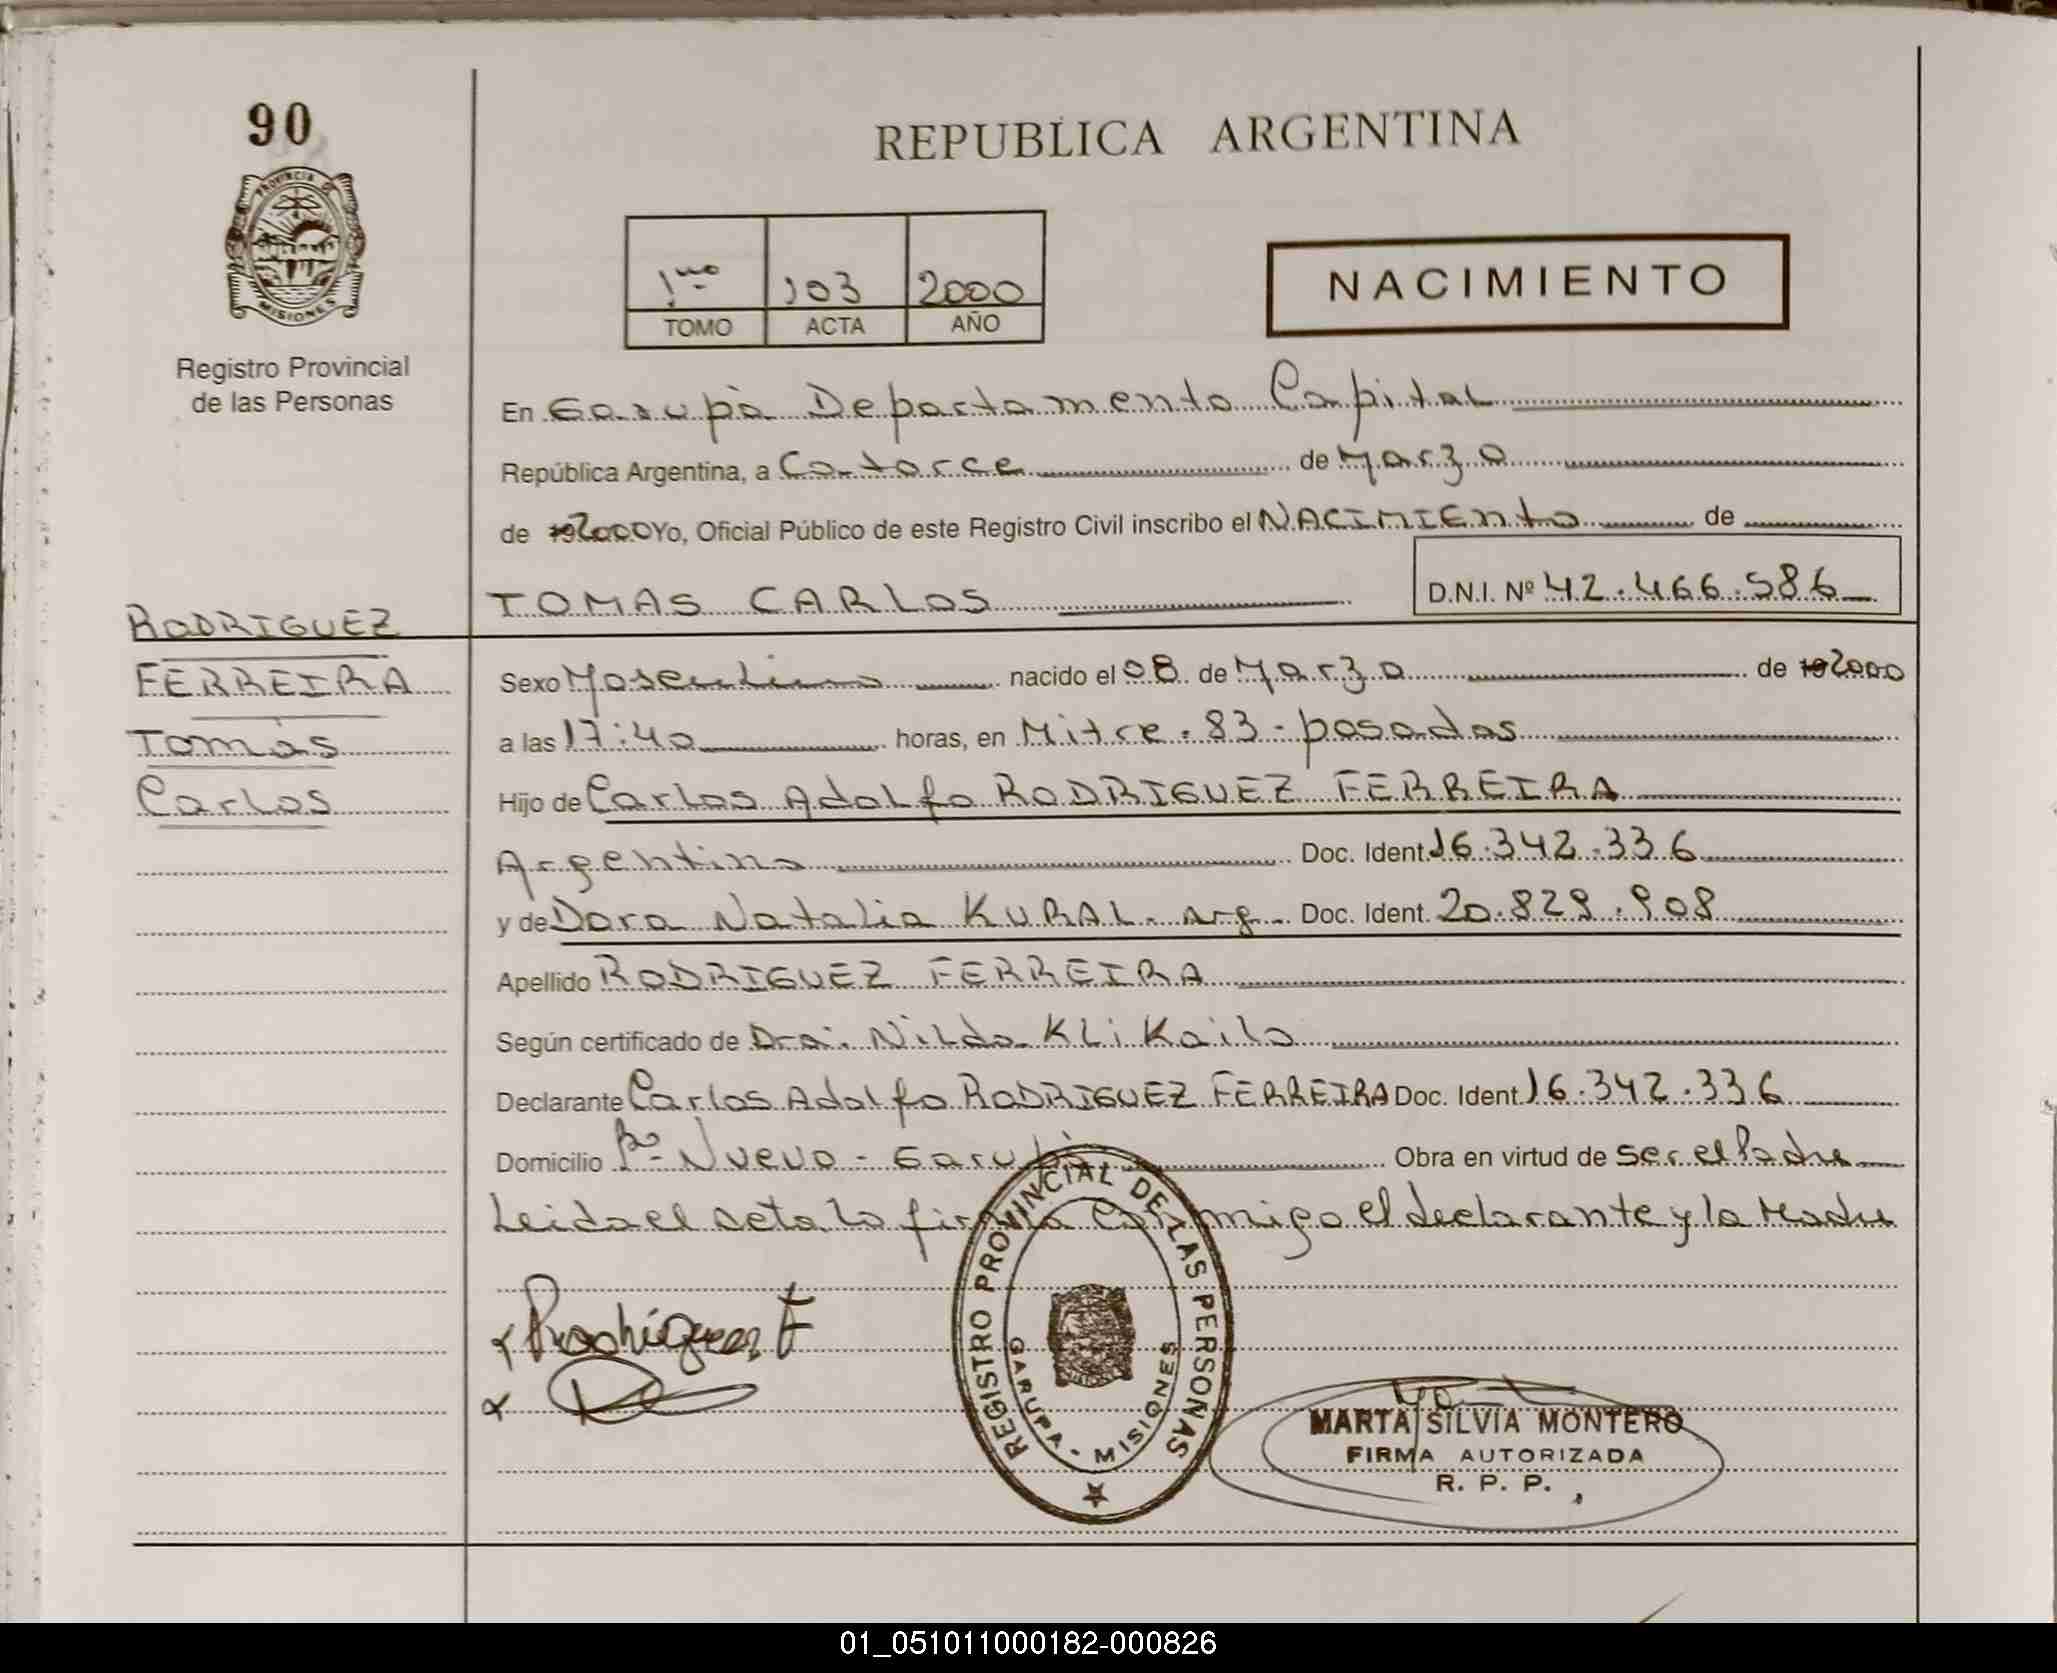 90
PROVINCIA DE
MISIONES
Registro Provincial
de las Personas
REPUBLICA ARGENTINA
1mo 103 2000
TOMO ACTA AÑO
NACIMIENTO
En Garupà Departamento Capital
República Argentina, a Catorce de Marzo
de 192000 Yo, Oficial Público de este Registro Civil inscribo el NACIMIENto de
TOMAS CARLOS D.N.I. Nº 42.466.586
RODRIGUEZ
FERREIRA
Tomas
Carlos
Sexo Masculino nacido el 08 de Marzo de 192000
a las 17:40 horas, en Mitre. 83 - posadas
Hijo de Carlos Adolfo RODRIGUEZ FERREIRA
Argentino Doc. Ident. 16.342.336
y de Dora Natalia KURAL. Arg. Doc. Ident. 20.829.908
Apellido RODRIGUEZ FERREIRA
Según certificado de Dra. Nilda KLiKailo
Declarante Carlos Adolfo RODRIGUEZ FERREIRA Doc. Ident. 16.342.336
Domicilio Bº Nuevo - Garupà Obra en virtud de ser el Padre
Leida el acta la firma conmigo el declarante y la Madre
Rodriguez F
REGISTRO PROVINCIAL DE LAS PERSONAS
GARUPA - MISIONES
MARTA SILVIA MONTERO
FIRMA AUTORIZADA
R. P. P.
01_051011000182-000826